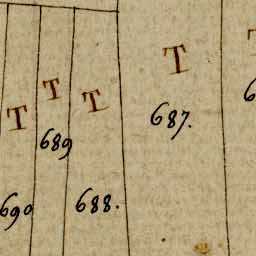 T
T
T
T
687.
689
690
688.